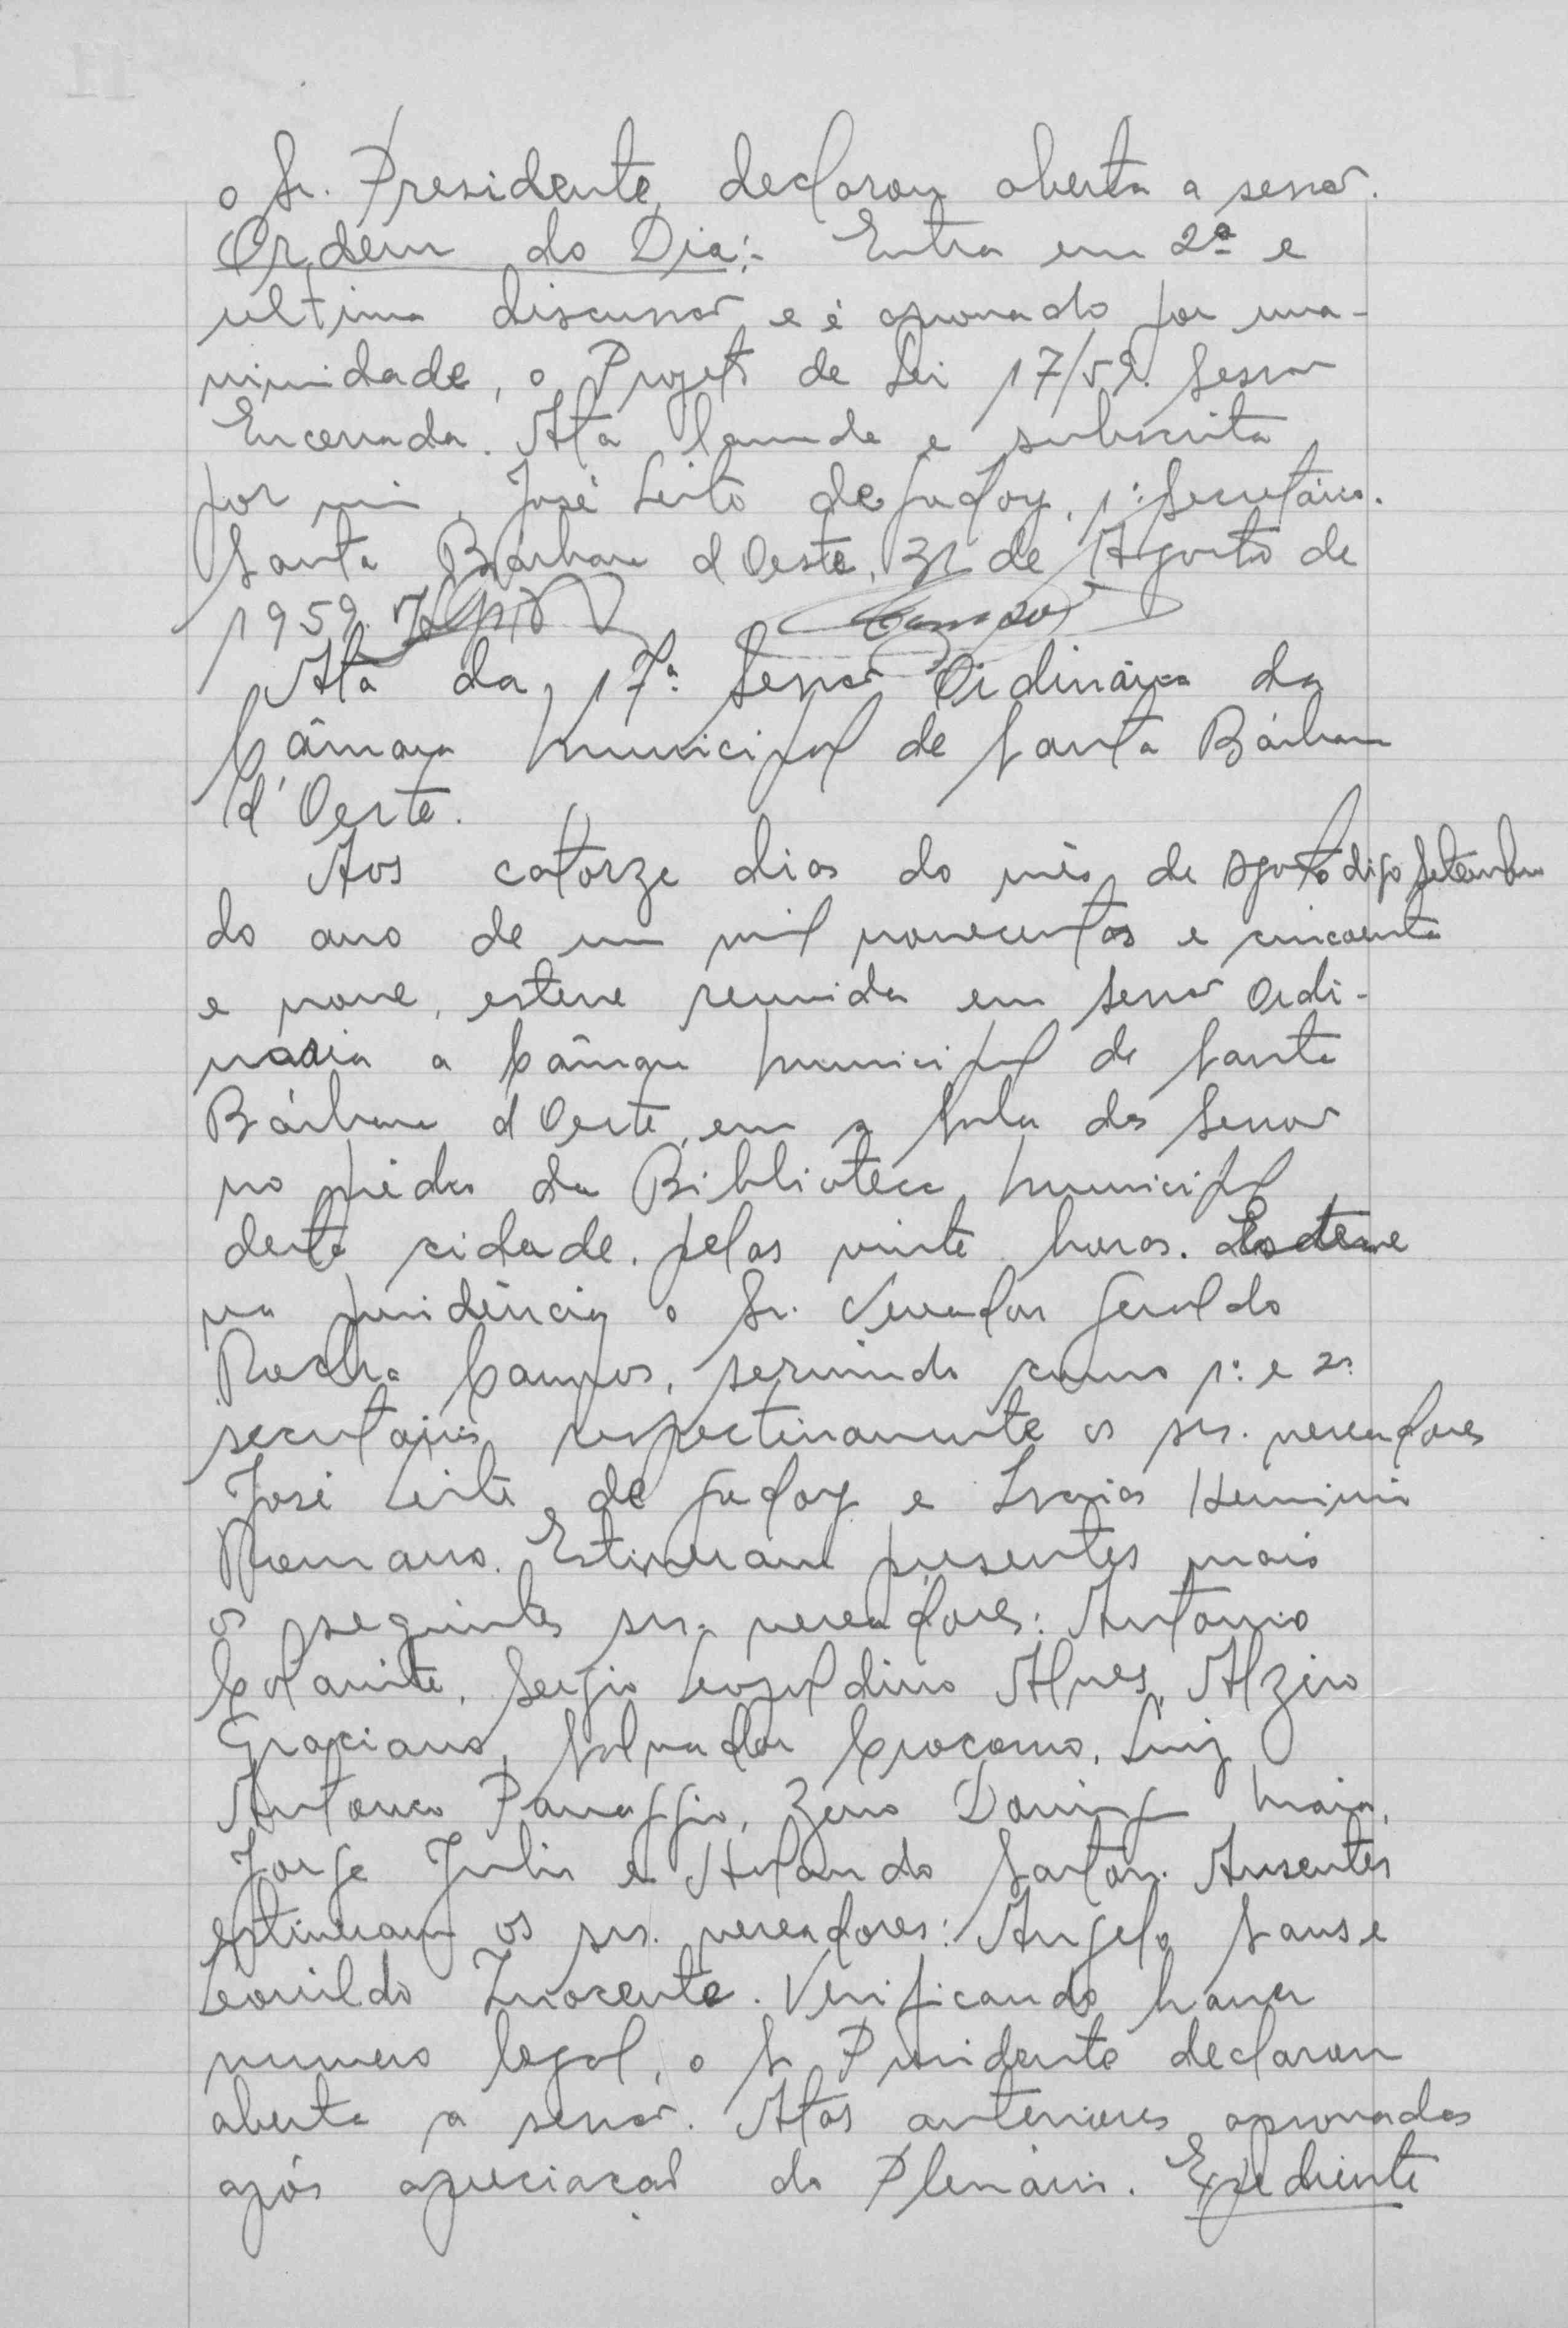 o Sr. Presidente, declarou aberta a sessão.
Ordem do Dia:- Entra em 2ª e
ultima discussão e é aprovado por una-
nimidade, o Projeto de Lei 17/59. Sessão
Encerrada. Ata lavrada e subscrita
por mim, José Leite de Godoy, 1º Secretário.
Santa Bárbara d'Oeste, 31 de Agosto de
1959. Campos
Ata da 17ª Sessão Ordinária da
Câmara Municipal de Santa Bárbara
d'Oeste.
Aos catorze dias do mês de agosto digo Setembro
do ano de um mil novecentos e cincoenta
e nove, esteve reunida em sessão Ordi-
naria a Câmara Municipal de Santa
Bárbara d'Oeste, em a sala das Sessão
no prédio da Biblioteca Municipal
desta cidade, pelas vinte horas. Esteve
na presidência o Sr. Vereador Geraldo
Rocha Campos, servindo como 1º e 2º
secretários respectivamente os srs. vereadores
José Leite de Godoy e Isaias Herminio
Romano. Estiveram presentes mais
os seguintes srs. vereadores: Antonio
Sergio Leopoldino Alves, Alziro
Graciano, Salvador Crocomo, Luiz
Antonio Panaggio, Zeno Maia,
Jorge Julio e Sartori. Ausentes
estiveram os srs. vereadores: Angelo Sans e
Leovildo Inocente. Verificando haver
numero legal, o Sr Presidente declarou
aberta a sessão. Atas anteriores aprovadas
após apreciação do Plenário. Expediente